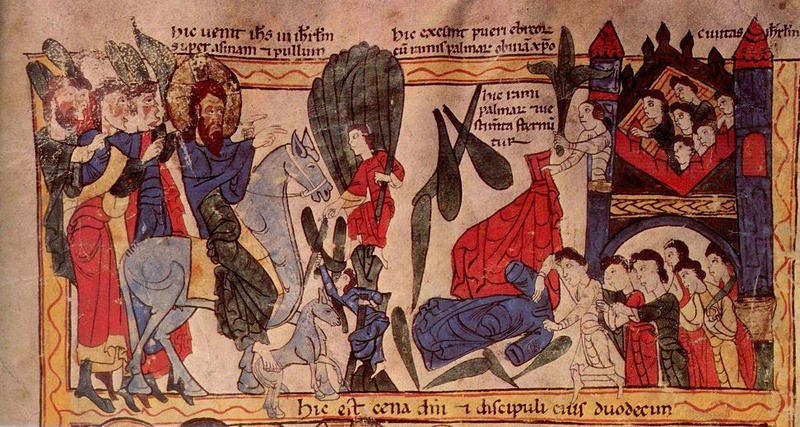 hic uenit ihs in ihrlm
super asinam ⁊ pullum
hic exeunt pueri ebreor
cũ ramis palmar obuiã xpo
ciuitas ihrlm
hic rami
palmar ⁊ ue
stimta sternũ
tur
hic est cena dni ⁊ discipuli eius duodecim